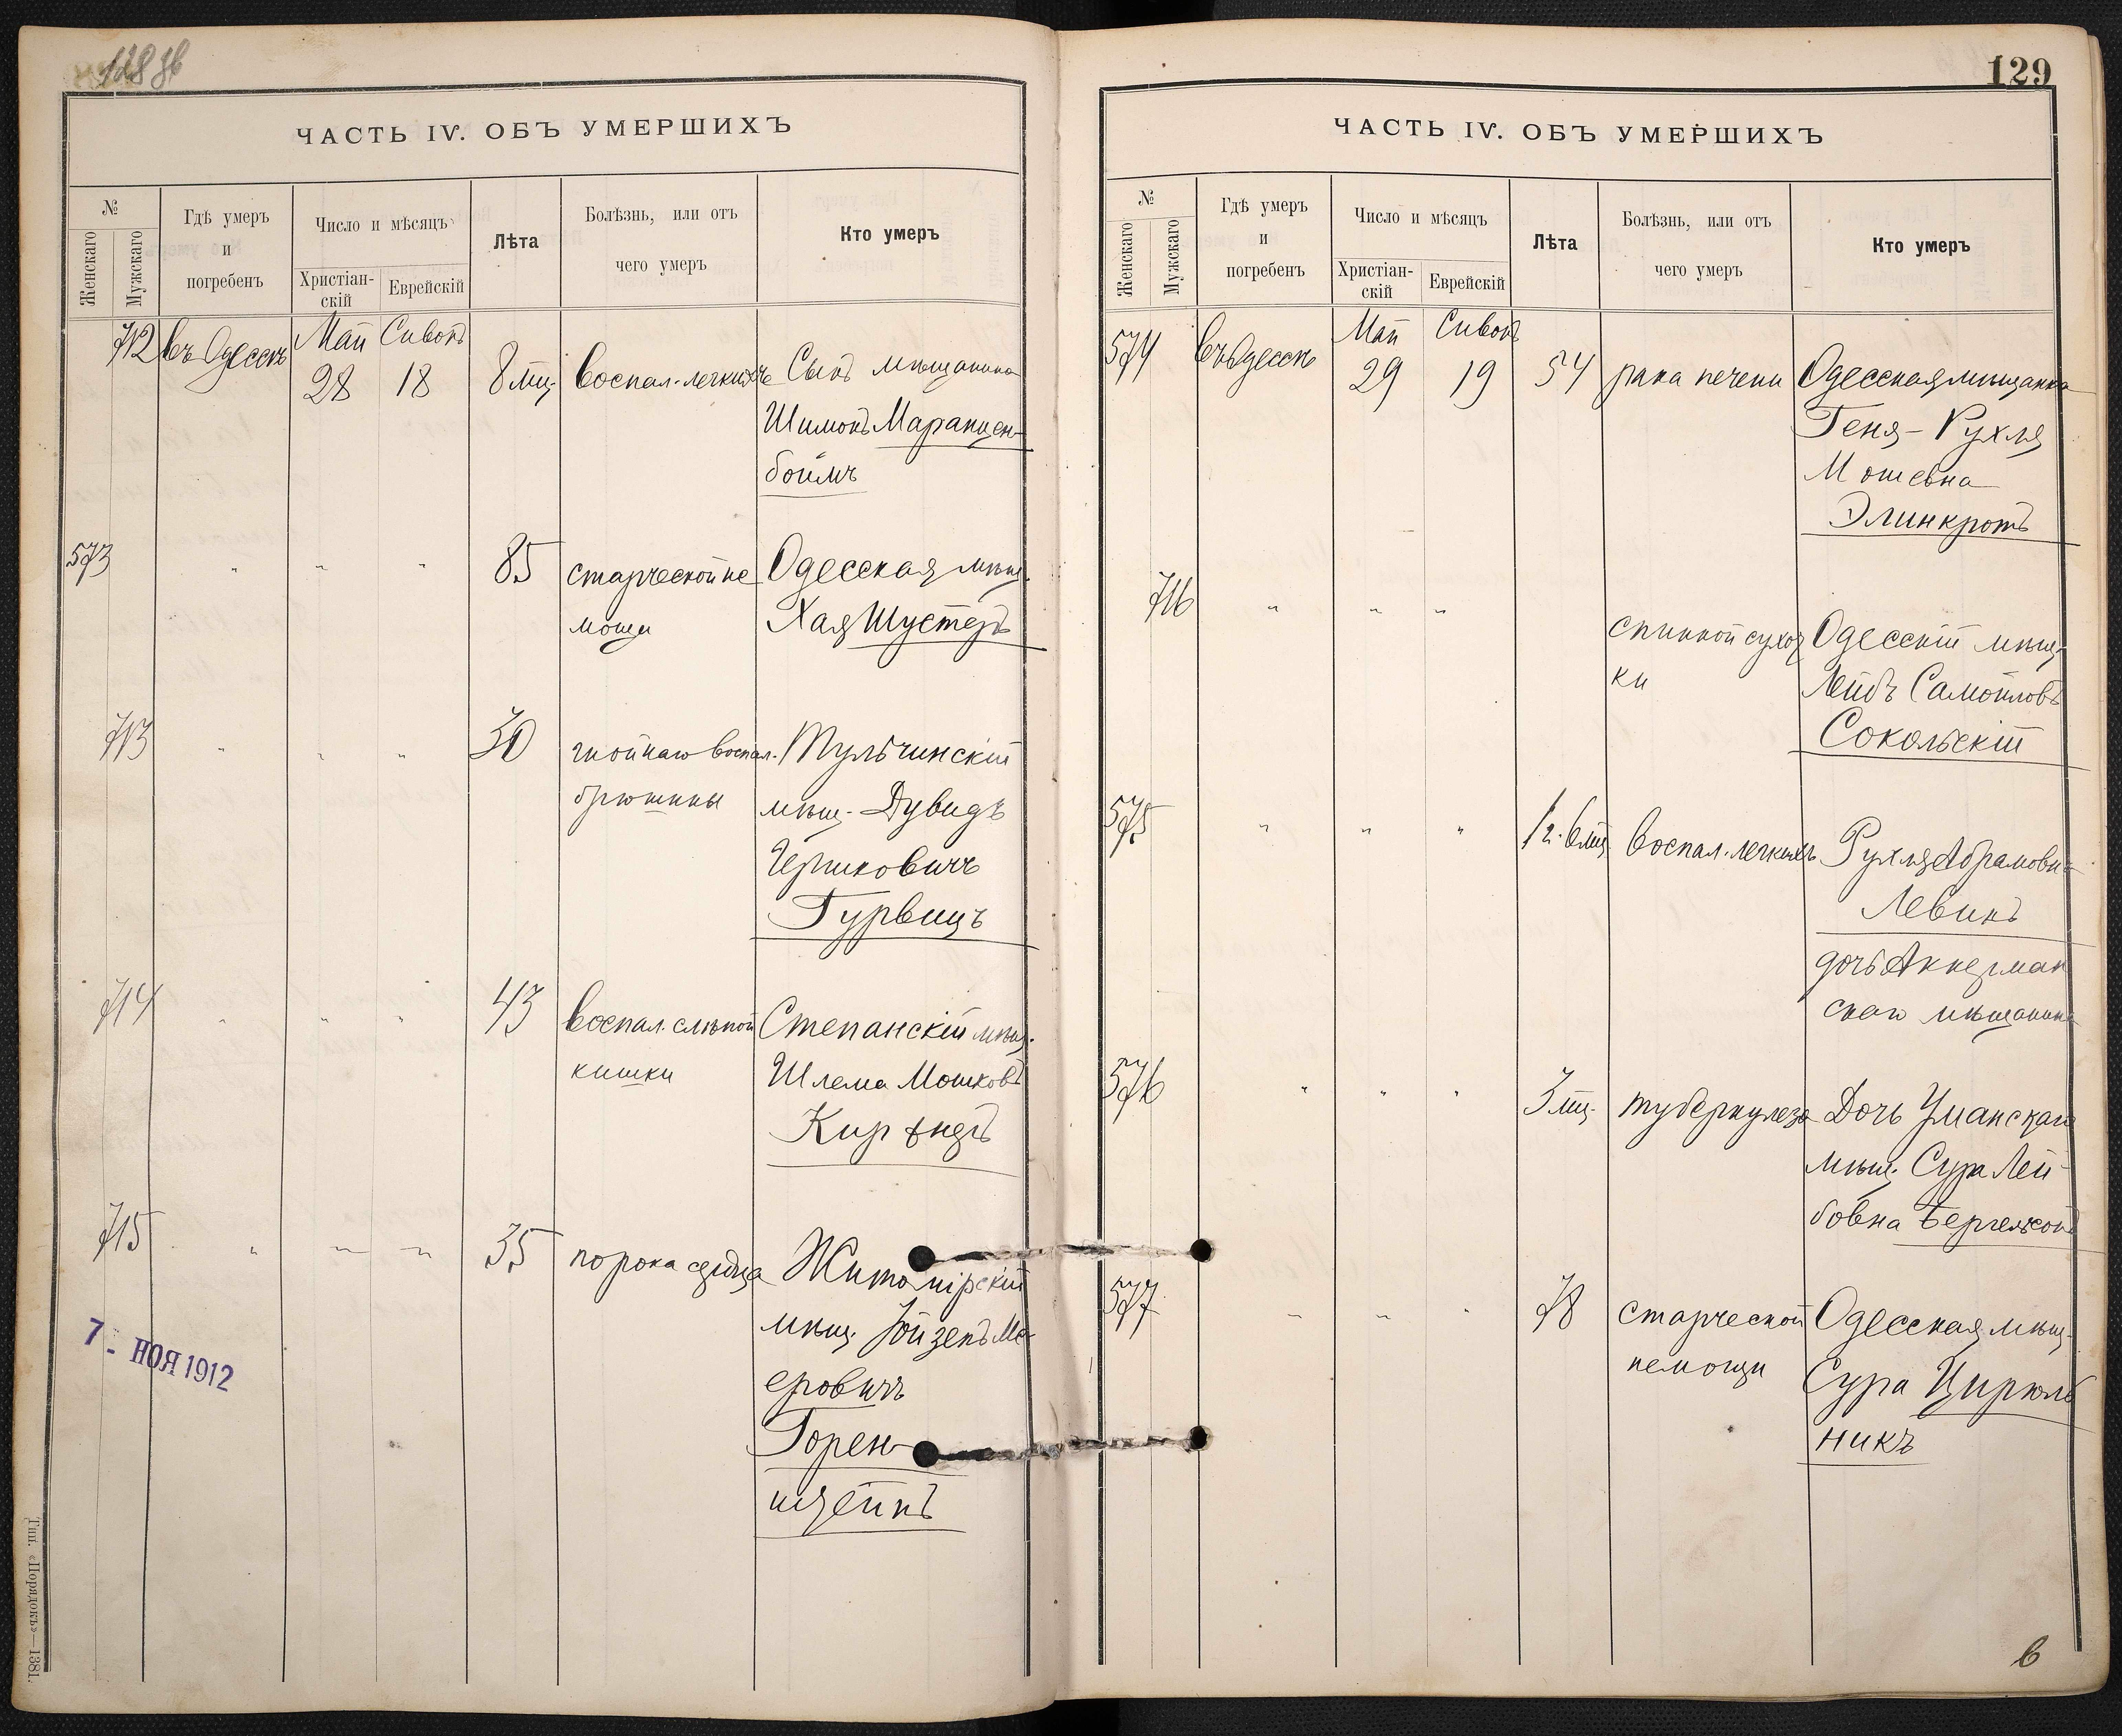 128 об
ЧАСТЬ IV. ОБЪ УМЕРШИХЪ
№
Женскаго
Мужскаго
Гдѣ умеръ
и
погребенъ
Число и мѣсяцъ
Христіан-
скій
Еврейскій
Лѣта
Болѣзнь, или отъ
чего умеръ
Кто умеръ
712 въ Одессѣ Май Сивонъ
28 18 8 мц. воспал. легкихъ Сынъ мѣщанина
Шимонъ Маранцен-
боймъ
573 " " " 85 старческой не Одесская мѣщ.
мощи Хая Шустеръ
713 " " " 30 гнойнаго воспал. Тульчинскій
брюшины мѣщ. Дувидъ
Гурвицъ
714 " " " 43 воспал. слѣпой Степанскій мѣщ.
кишки Шлема Мошковъ
715 " " " 35 порока сердца Житомірскій
мѣщ. Ме-
еровичъ
Горен-
штейнъ
7 - НОЯ 1912
Тип. «Порядокъ»—1381.
129
ЧАСТЬ IV. ОБЪ УМЕРШИХЪ
№
Женскаго
Мужскаго
Гдѣ умеръ
и
погребенъ
Число и мѣсяцъ
Христіан-
скій
Еврейскій
Лѣта
Болѣзнь, или отъ
чего умеръ
Кто умеръ
574 въ Одессѣ Май Сивонъ
29 19 54 рака печени Одесская мѣщанка
Геня-Рухля
Мошевна
Элинкротъ
716 " " "
спинной сухот Одесскій мѣщ.
ки Лейбъ Самойловъ
Сокольскій
575 " " " 1 г. 6 мц. воспал. легкихъ Рухля Абрамовна
Левинъ
дочь Аккерман
скаго мѣщанина
576 " " " 3 мц. туберкулеза Дочь Уманскаго
мѣщ. Сура Лей-
бовна Бергельсонъ
577 " " " 78 старческой Одесская мѣщ.
немощи Сура Цирюль
никъ